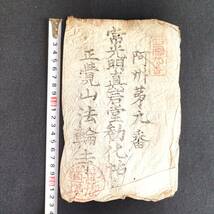 阿州第九番
常光明真言堂勧化帖
正覚山法輪寺